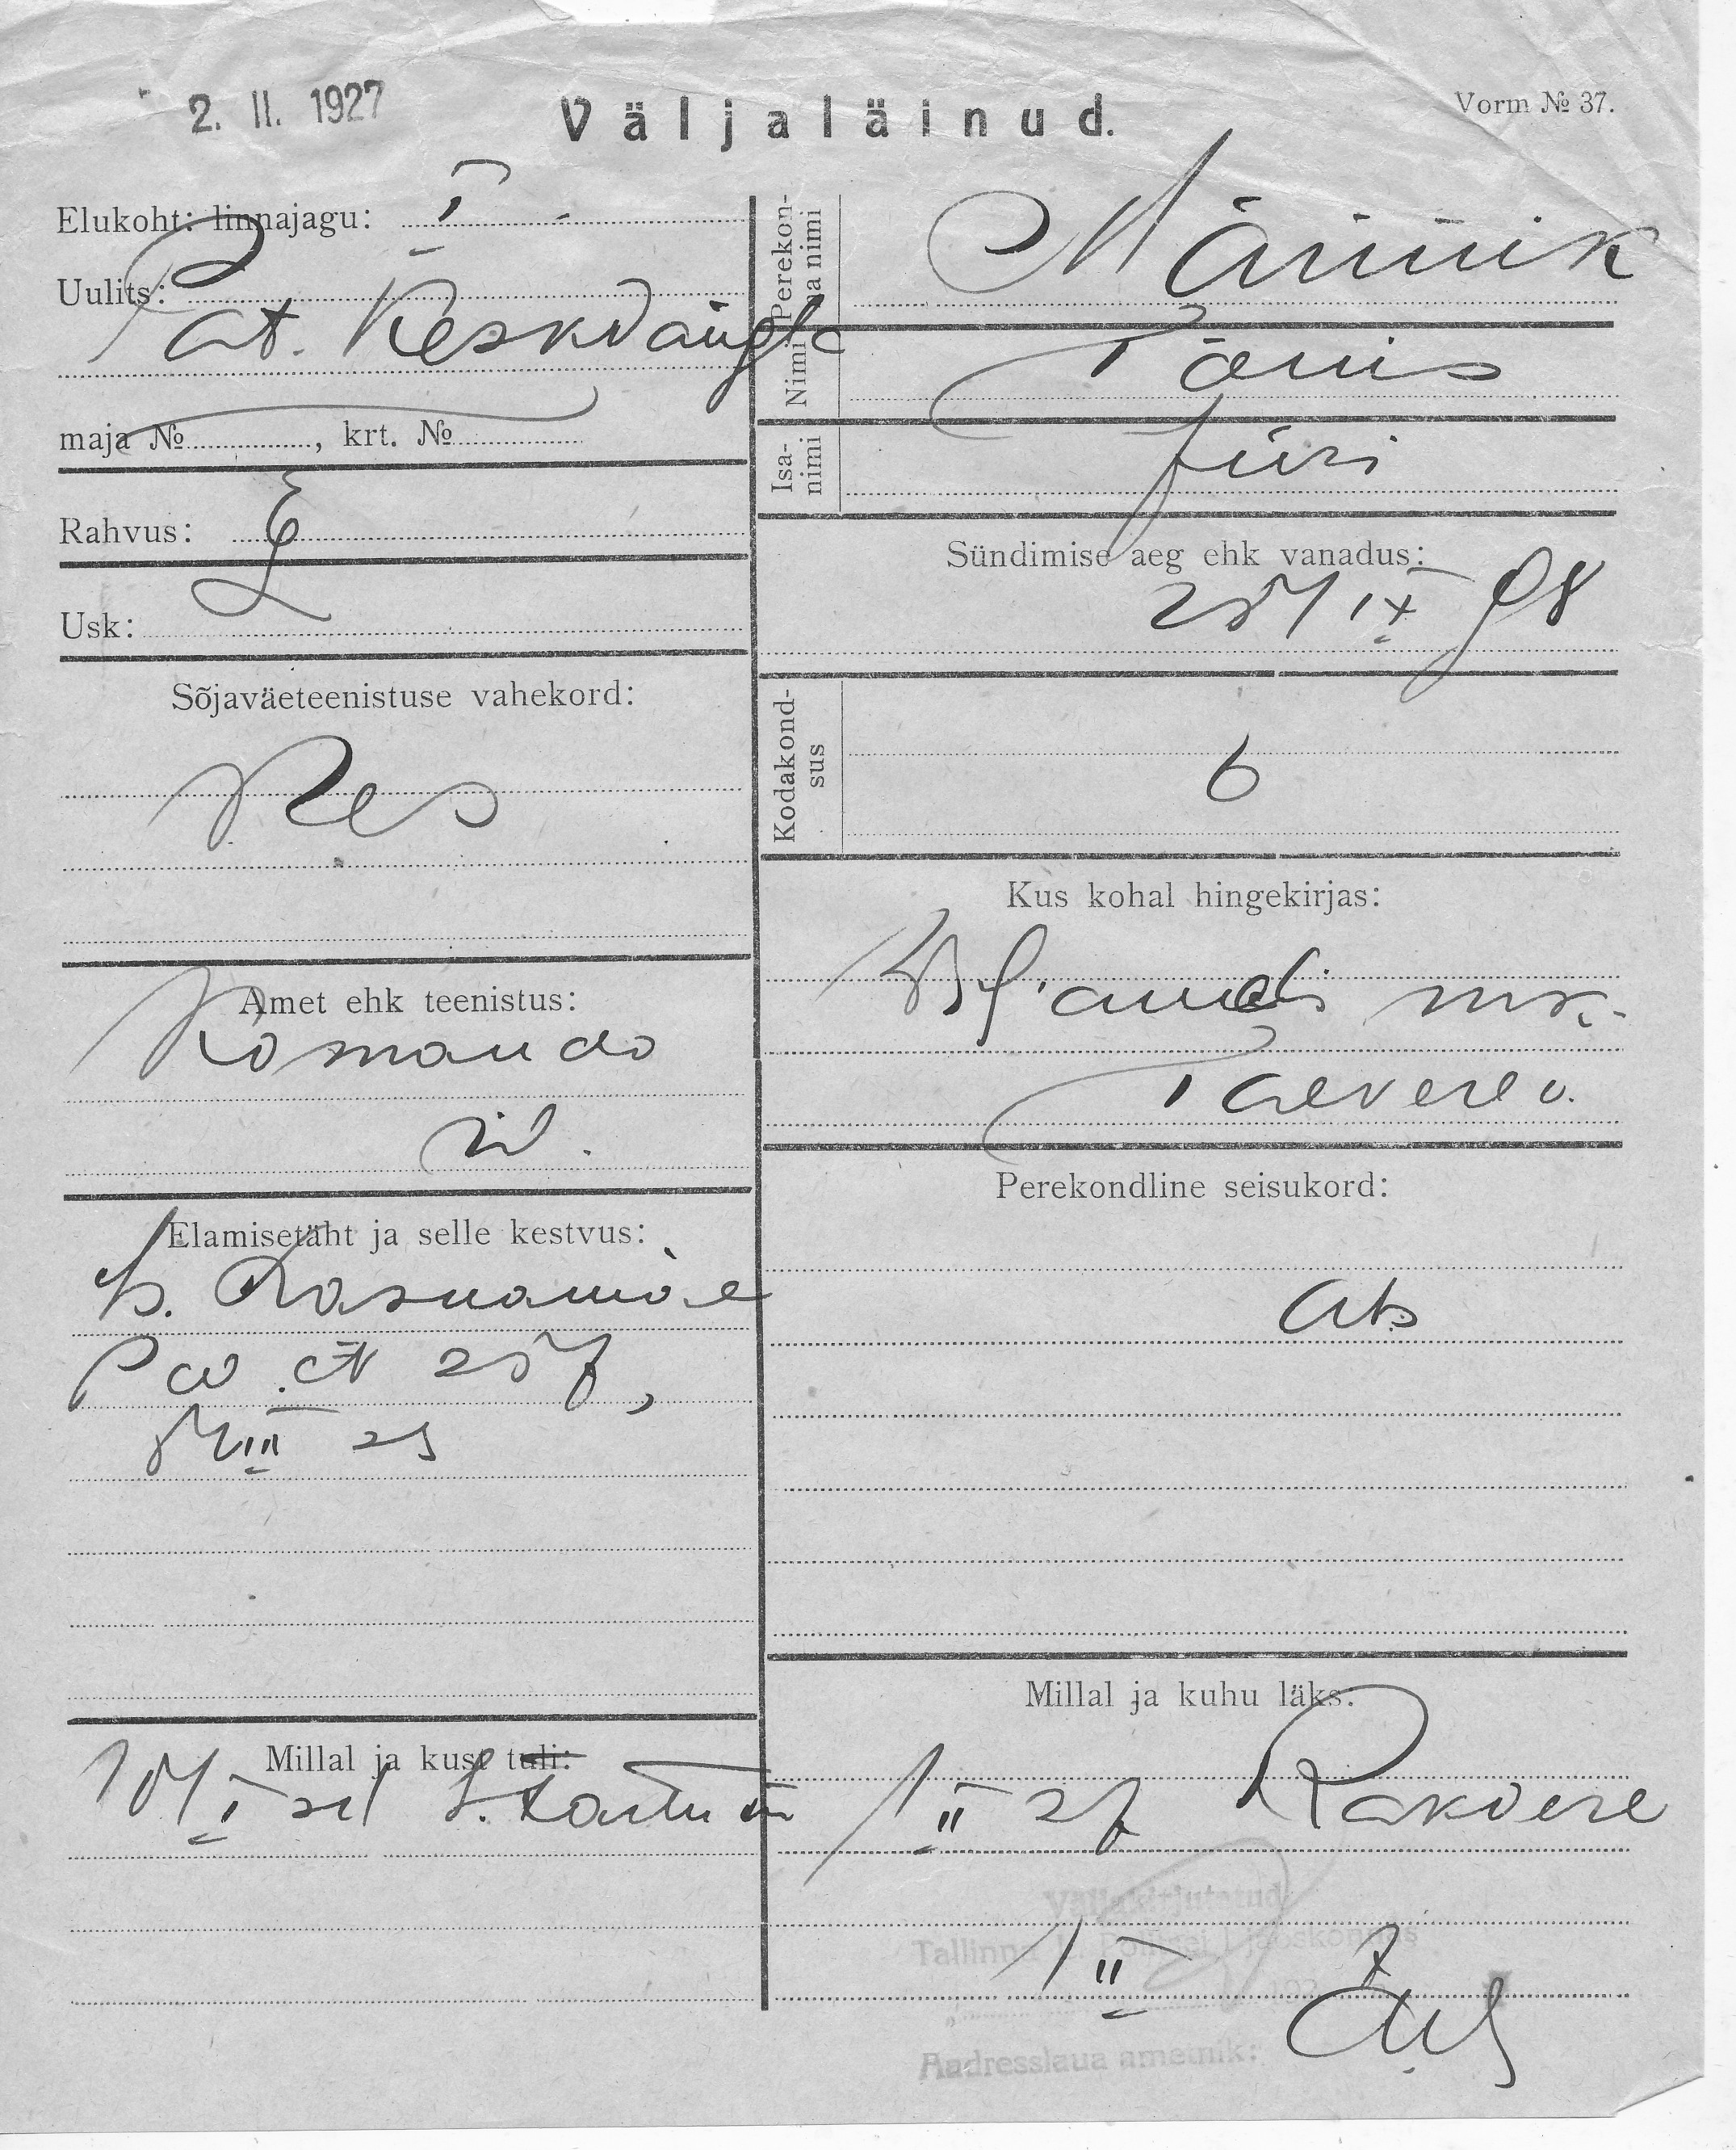 2. II. 1927
Väljaläinud.
Vorm № 37.
Elukoht: linnajagu: I
Uulits:
Pat. Keskvangla
maja № , krt. №
Rahvus: E
Usk: L
Sõjaväeteenistuse vahekord:
Res
Amet ehk teenistus:
Komando
Elamisetäht ja selle kestvus:
Millal ja kust tuli:
Perekonna nimi
Männik
Nimi
Tõnis
Isanimi
Jüri
Sündimise aeg ehk vanadus:
25/IX 98
Kodakondsus
Kus kohal hingekirjas:
Wiljandi mk.
Taevere v.
Perekondline seisukord:
Ab
Millal ja kuhu läks.
1/II 27 Rakvere
Väljakirjutatud
Tallinna L. Politsei I jaoskonnas
1 II 192 7
Aadresslaua ametnik: